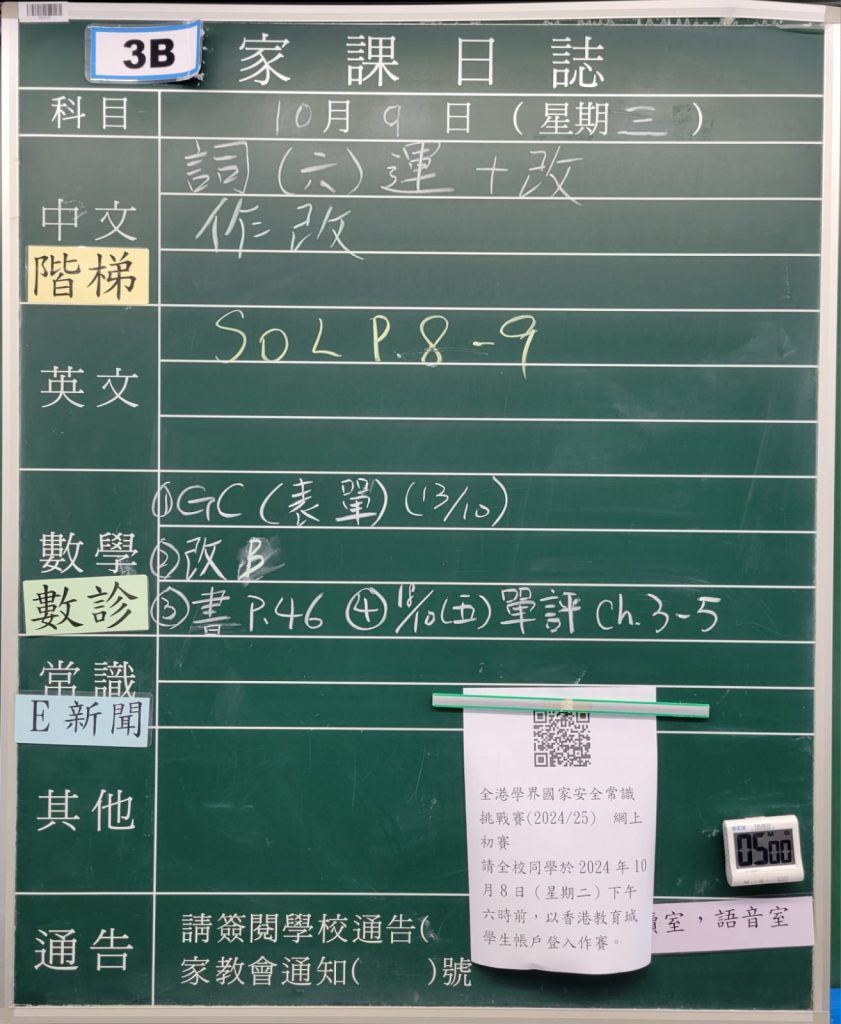 3B
家課日誌
科目 10月9日(星期三)
詞(六)運+改
中文 作改
階梯
SOL P.8-9
英文
①GC(表單)(13/10)
數學 ②改B
數診 ③書P.46 ④18/10(五)單評Ch.3-5
常識
E新聞
全港學界國家安全常識
挑戰賽(2024/25) 網上
初賽
請全校同學於2024年10
月8日(星期二)下午
六時前,以香港教育城
學生帳戶登入作賽。
其他
05 00
M S
通告 請簽閱學校通告(
家教會通知( )號
室,語音室